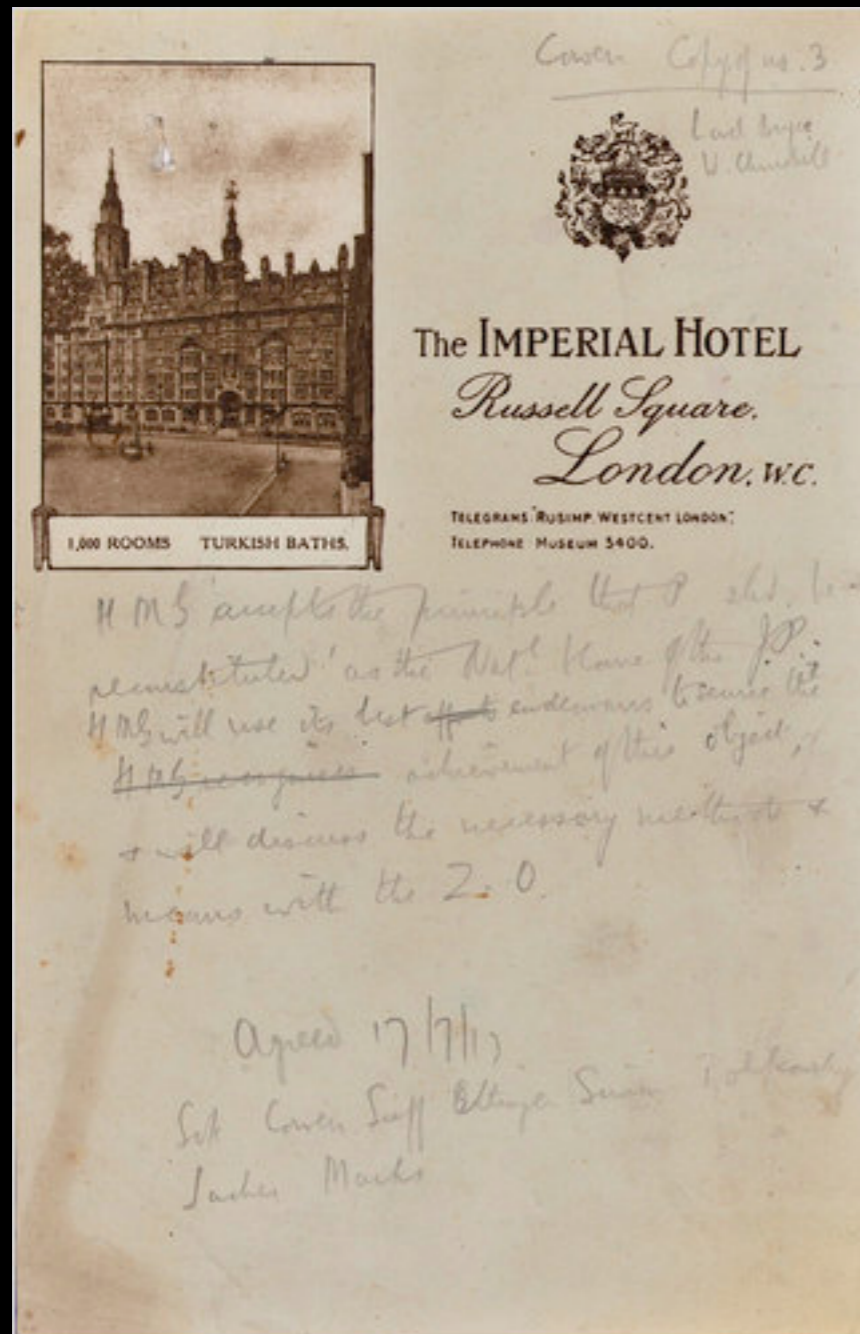 Cowen Copy of no. 3
Lord Bryce
W. Churchill
The IMPERIAL HOTEL
Russell Square.
London. W.C.
TELEGRAMS "RUSIMP. WESTCENT LONDON".
TELEPHONE MUSEUM 5400.
1,000 ROOMS TURKISH BATHS.
H M G accepts the principle that P shd. be
reconstituted as the Natl. Home of the J.P.
HMG will use its best endeavours to secure the
HMG recognises achievement of this object,
& will discuss the necessary methods &
means with the Z. O.
Agreed 17/7/17
Sok Cowen Sieff Ettinger Simon Tolkowsky
Sacher Marks